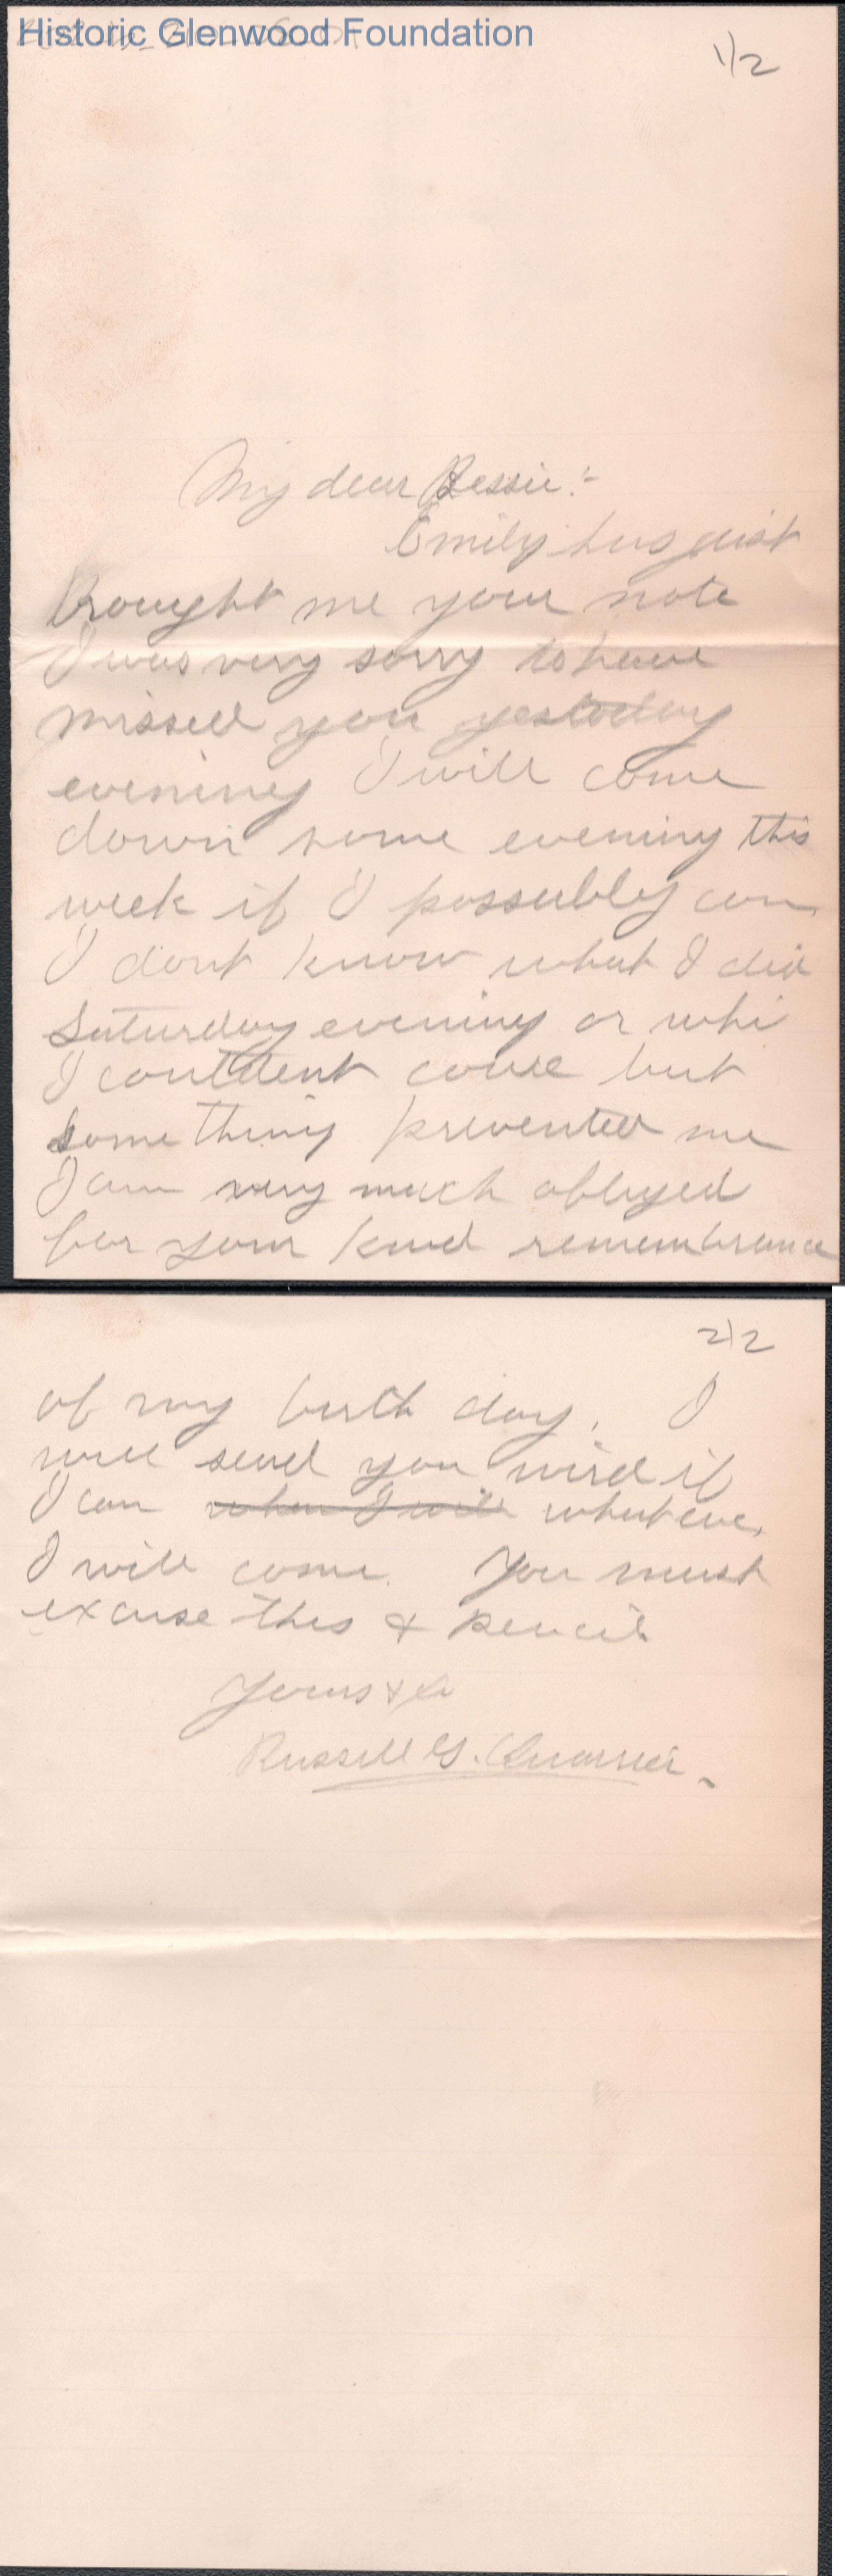 Historic Glenwood Foundation
1/2
My dear Bessie:-
Emily has just
brought me your note
I was very sorry to have
missed you yestoday
evening I will come
down some evening this
week if I possubly can
I dont know what I did
Saturday evening or whi
I couldent come but
something prevented me
I am very much obliged
for your kind remembrance
2/2
of my birth day. I
will send you wird if
I can when I will whateve
I will come. You must
excuse this & pencil
Yours &c
Russell G. Quarrier.